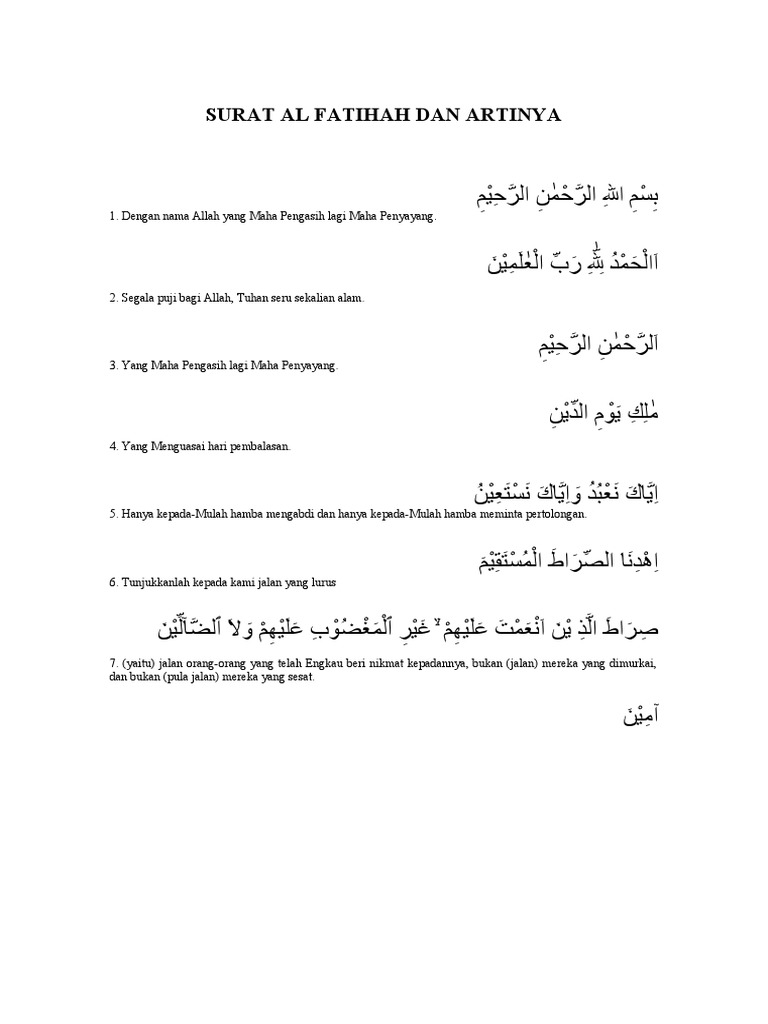 SURAT AL FATIHAH DAN ARTINYA
بِسْمِ اللهِ الرَّحْمٰنِ الرَّحِيْمِ
1. Dengan nama Allah yang Maha Pengasih lagi Maha Penyayang.
اَالْحَمْدُ لِلّٰهِ رَبِّ الْعٰلَمِيْنَ
2. Segala puji bagi Allah, Tuhan seru sekalian alam.
اَلرَّحْمٰنِ الرَّحِيْمِ
3. Yang Maha Pengasih lagi Maha Penyayang.
مٰلِكِ يَوْمِ الدِّيْنِ
4. Yang Menguasai hari pembalasan.
اِيَّاكَ نَعْبُدُ وَاِيَّاكَ نَسْتَعِيْنُ
5. Hanya kepada-Mulah hamba mengabdi dan hanya kepada-Mulah hamba meminta pertolongan.
اِهْدِنَا الصِّرَاطَ الْمُسْتَقِيْمَ
6. Tunjukkanlah kepada kami jalan yang lurus
صِرَاطَ الَّذِ يْنَ اَنْعَمْتَ عَلَيْهِمْ ۙ غَيْرِ ٱلْمَغْضُوْبِ عَلَيْهِمْ وَلاَ ٱلضَّآلِّيْنَ
7. (yaitu) jalan orang-orang yang telah Engkau beri nikmat kepadannya, bukan (jalan) mereka yang dimurkai,
dan bukan (pula jalan) mereka yang sesat.
آمِيْنَ